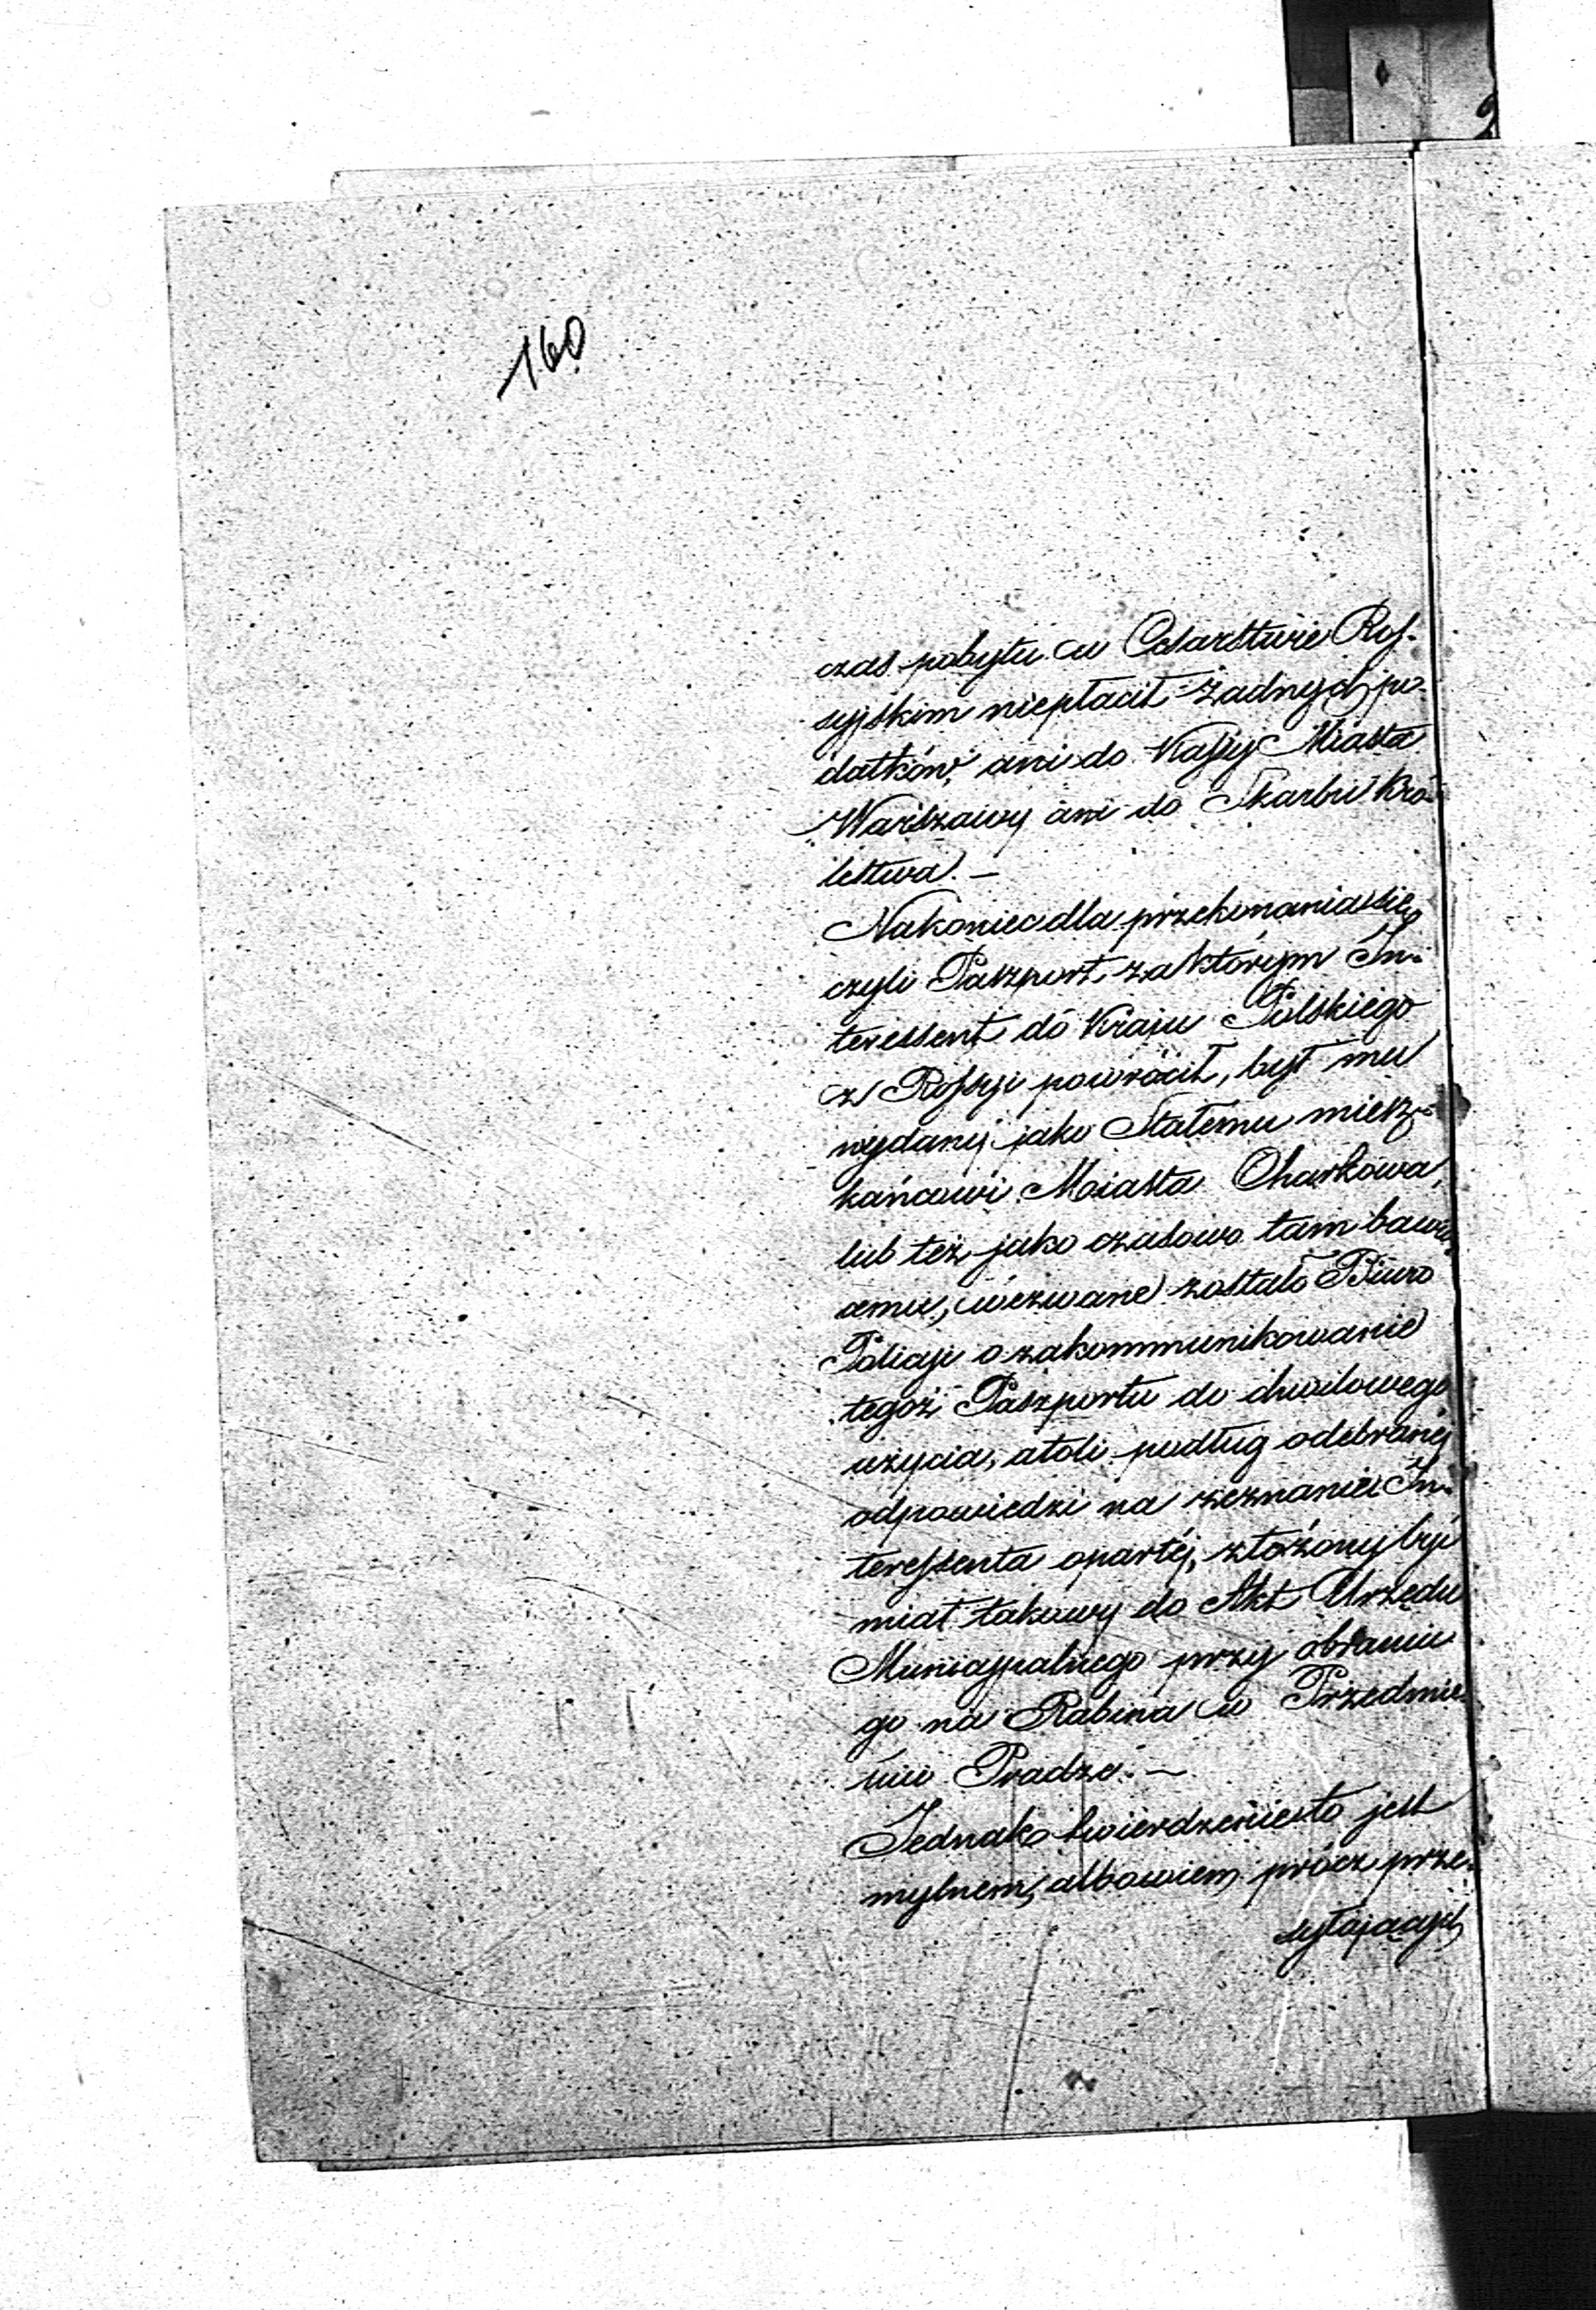 160
czas pobytu w Cesarstwie Ros-
syjskim niepłacił żadnych po-
datków, ani do Kassy Miasta
Warszawy ani do Skarbu Kró-
lestwa. —
Nakoniec dla przekonania się,
czyli Paszport, za którym In-
teressent do Kraju Polskiego
z Rossyi powrócił, był mu
wydany jako Stałemu miesz-
kańcowi Miasta Charkowa,
lub też jako czasowo tam bawią-
cemu, wezwane zostało Biuro
Policyi o zakommunikowanie
tegoż Paszportu do chwilowego
użycia, atoli podług odebranéj
odpowiedzi na zeznaniu In-
teressenta opartéj, złożony być
miał takowy do Akt Urzędu
Municypalnego przy obraniu
go na Rabina w Przedmie-
ściu Pradze. —
Jednak twierdzenie to jest
mylnem, albowiem prócz prze-
syłających